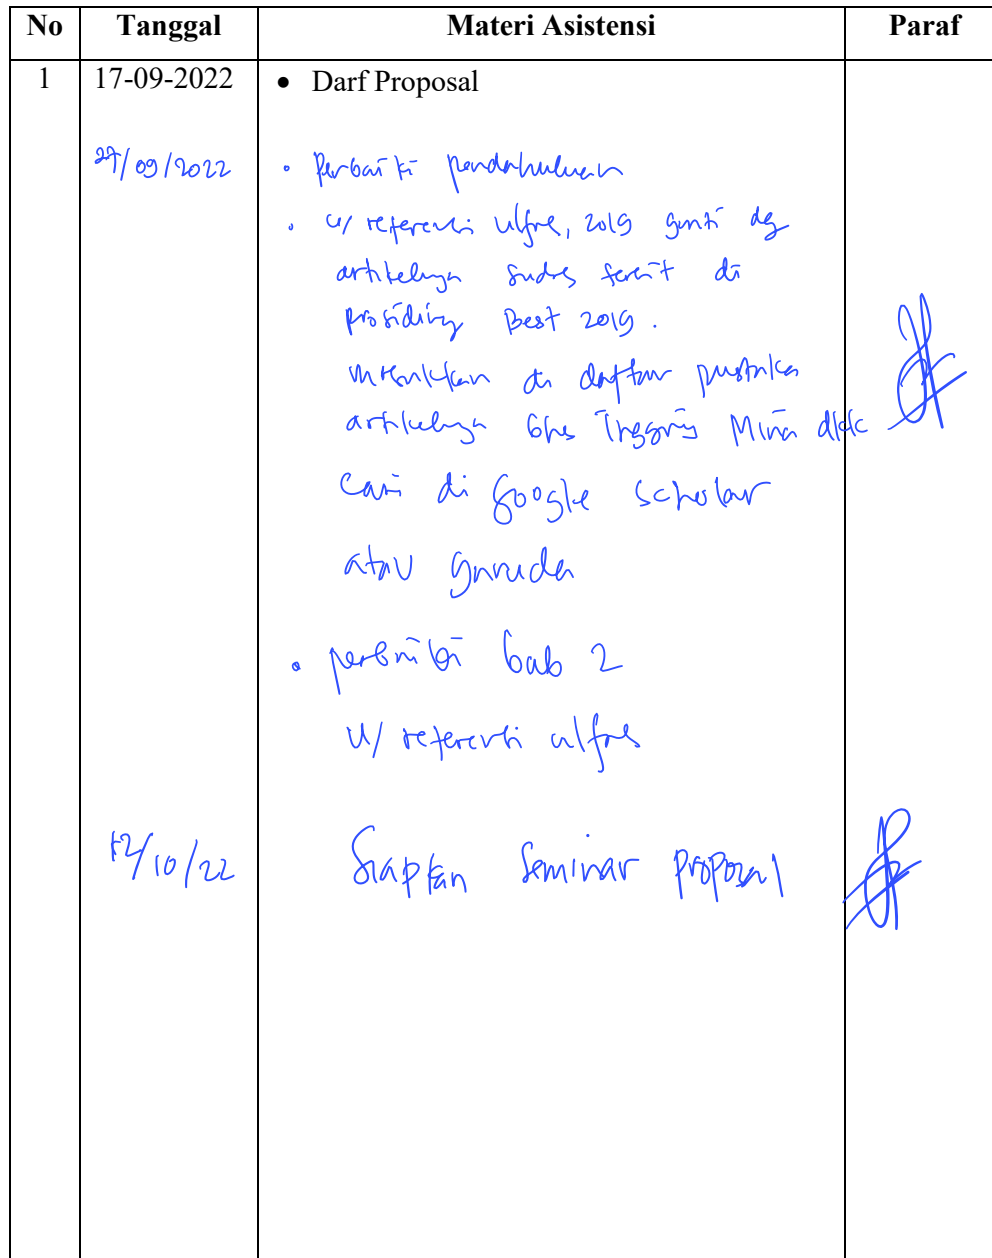 No Tanggal Materi Asistensi Paraf
1 17-09-2022 • Darf Proposal
27/09/2022 • Perbaiki pendahuluan
• u/ referensi ulfres, 2019 ganti dg
artikelnya sudes terbit di
prosiding Best 2019.
masukkan di daftar pustaka
artikelnya bhs Inggris Mina dkk
Cari di google scholar
atau garuda
• perbaiki bab 2
u/ referensi ulfres
12/10/22 Siapkan Seminar Proposal